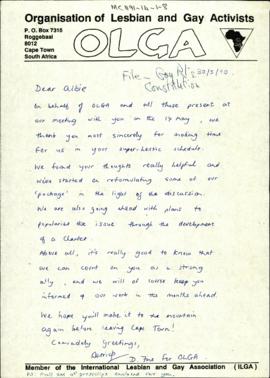 MCH91-14-1-8
Organisation of Lesbian and Gay Activists
P. O. Box 7315
Roggebaai
8012
Cape Town
South Africa
OLGA
File - Gay
Constitution
30/5/90.
Dear Albie
On behalf of OLGA and all those present at
our meeting with you on the 19 May, we
thank you most sincerely for making time
for us in your super-hectic schedule.
We found your thoughts really helpful and
we've started on reformulating some of our
'package' in the light of the discussion.
We are also going ahead with plans to
popularise the issue through the development
of a Charter.
Above all, it's really good to know that
we can count on you as a strong
ally, and we will of course keep you
informed of our work in the months ahead.
We hope you'll make it to the mountain
again before leaving Cape Town!
Comradely Greetings,
Derrick
D. Fine for OLGA
Member of the International Lesbian and Gay Association (ILGA)